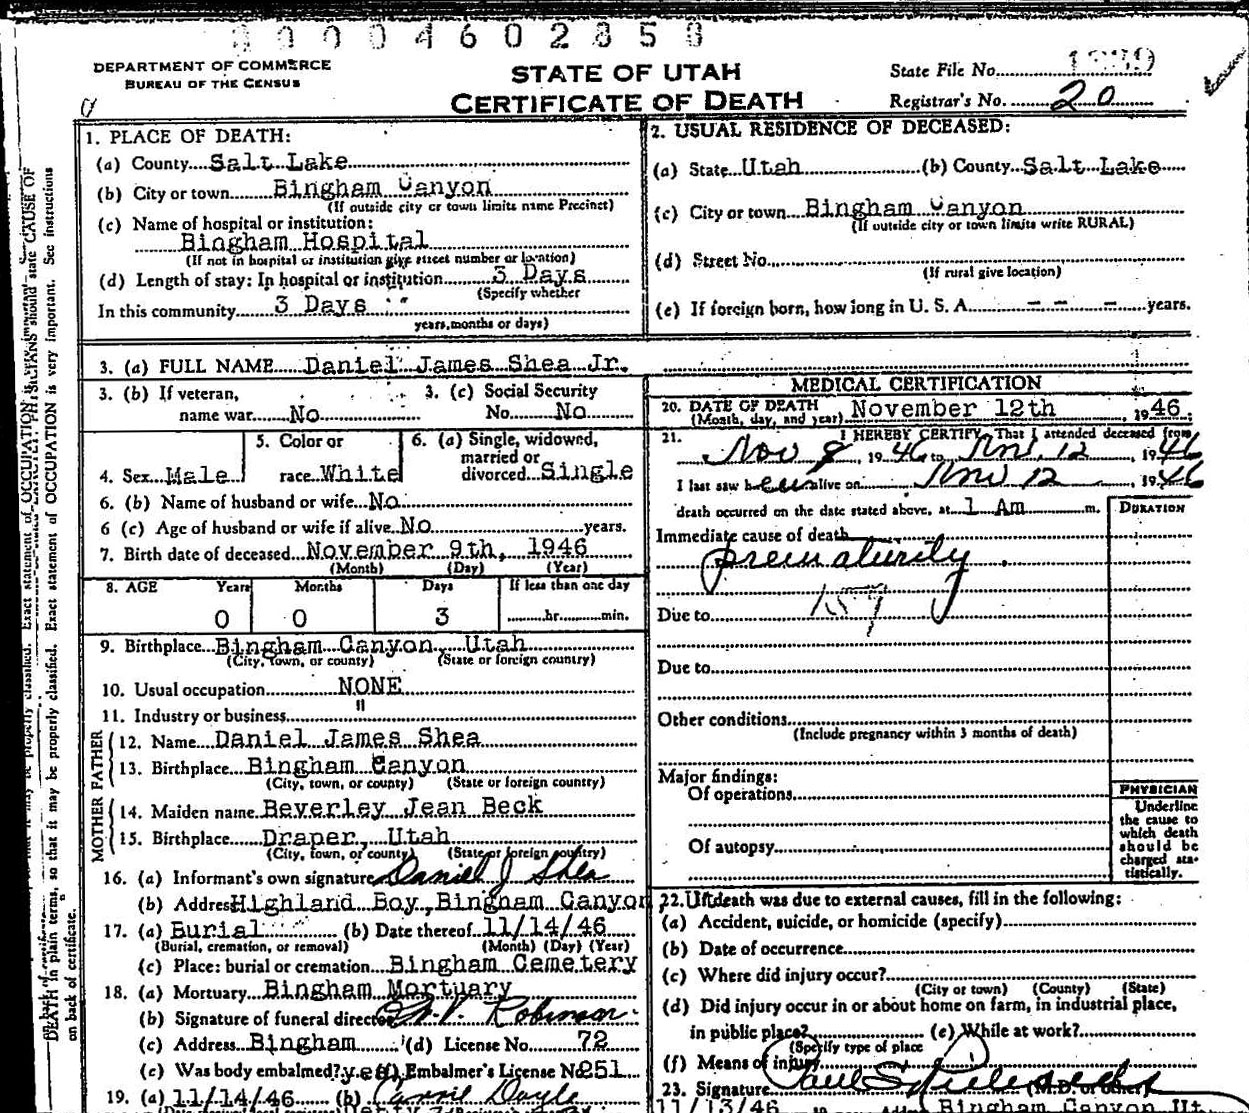 00004602858
DEPARTMENT OF COMMERCE
BUREAU OF THE CENSUS
STATE OF UTAH
CERTIFICATE OF DEATH
State File No.
Registrar's No. 20
1. PLACE OF DEATH:
(a) County Salt Lake
(b) City or town Bingham Canyon
(If outside city or town limits name Precinct)
(c) Name of hospital or institution:
Bingham Hospital
(If not in hospital or institution give street number or location)
(d) Length of stay: In hospital or institution 3 Days
(Specify whether
In this community 3 Days
years, months or days)
2. USUAL RESIDENCE OF DECEASED:
(a) State Utah (b) County Salt Lake
(c) City or town Bingham Canyon
(If outside city or town limits write RURAL)
(d) Street No.
(If rural give location)
(e) If foreign born, how long in U. S. A. - - - - years.
3. (a) FULL NAME Daniel James Shea Jr.
3. (b) If veteran, 3. (c) Social Security
name war No No. No
4. Sex Male
5. Color or
race White
6. (a) Single, widowed,
married or
divorced Single
6. (b) Name of husband or wife No
6 (c) Age of husband or wife if alive No years.
7. Birth date of deceased November 9th, 1946
(Month) (Day) (Year)
8. AGE Years Months Days If less than one day
0 0 3 hr. min.
9. Birthplace Bingham Canyon, Utah
(City, town, or county) (State or foreign country)
10. Usual occupation NONE
11. Industry or business "
FATHER
12. Name Daniel James Shea
13. Birthplace Bingham Canyon
(City, town, or county) (State or foreign country)
MOTHER
14. Maiden name Beverley Jean Beck
15. Birthplace Draper, Utah
(City, town, or county) (State or foreign country)
16. (a) Informant's own signature Daniel J Shea
(b) Address Highland Boy, Bingham Canyon
17. (a) Burial (b) Date thereof 11/14/46
(Burial, cremation, or removal) (Month) (Day) (Year)
(c) Place: burial or cremation Bingham Cemetery
18. (a) Mortuary Bingham Mortuary
(b) Signature of funeral director Robinson
(c) Address Bingham (d) License No. 72
(e) Was body embalmed? yes (f) Embalmer's License No 251
19. (a) 11/14/46 (b) Doyle
MEDICAL CERTIFICATION
20. DATE OF DEATH November 12th, 1946.
(Month, day, and year)
21. I HEREBY CERTIFY, That I attended deceased from
Nov 8, 1946 to Nov. 12, 1946
I last saw h alive on Nov 12 1946
death occurred on the date stated above, at 1 Am m.
DURATION
Immediate cause of death
prematurity
Due to 159
Due to
Other conditions
(Include pregnancy within 3 months of death)
Major findings:
Of operations
Of autopsy
PHYSICIAN
Underline
the cause to
which death
should be
charged sta-
tistically.
22. If death was due to external causes, fill in the following:
(a) Accident, suicide, or homicide (specify)
(b) Date of occurrence
(c) Where did injury occur?
(City or town) (County) (State)
(d) Did injury occur in or about home on farm, in industrial place,
in public place? (e) While at work?
(Specify type of place
(f) Means of injury
23. Signature Paul S (M.D. or other)
11/13/46 Bingham Canyon Ut.
DEATH in plain terms, so that it may be properly classified. Exact statement of OCCUPATION is very important. See instructions
on back of certificate.